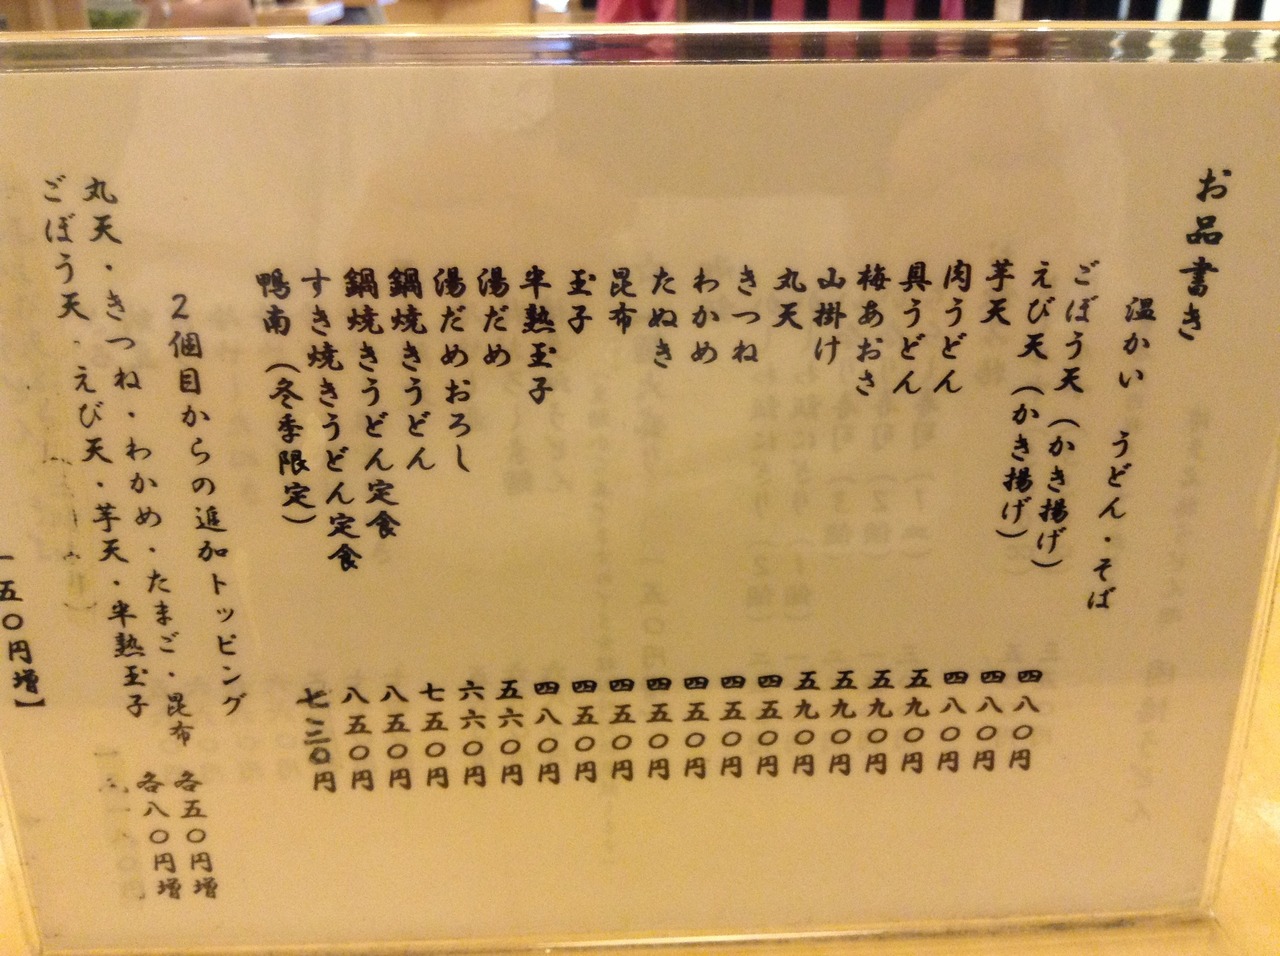 お品書き
温かい うどん・そば
ごぼう天（かき揚げ） 四八〇円
えび天（かき揚げ） 四八〇円
芋天 四八〇円
肉うどん 五九〇円
具うどん 五九〇円
梅あおさ 五九〇円
山掛け 五九〇円
丸天 四五〇円
きつね 四五〇円
わかめ 四五〇円
たぬき 四五〇円
昆布 四五〇円
玉子 四五〇円
半熟玉子 四八〇円
湯だめ 五六〇円
湯だめおろし 六六〇円
鍋焼きうどん 七五〇円
鍋焼きうどん定食 八五〇円
すき焼きうどん定食 八五〇円
鴨南（冬季限定） 七三〇円
2個目からの追加トッピング
丸天・きつね・わかめ・たまご・昆布 各五〇円増
ごぼう天・えび天・芋天・半熟玉子 各八〇円増
一五〇円増】